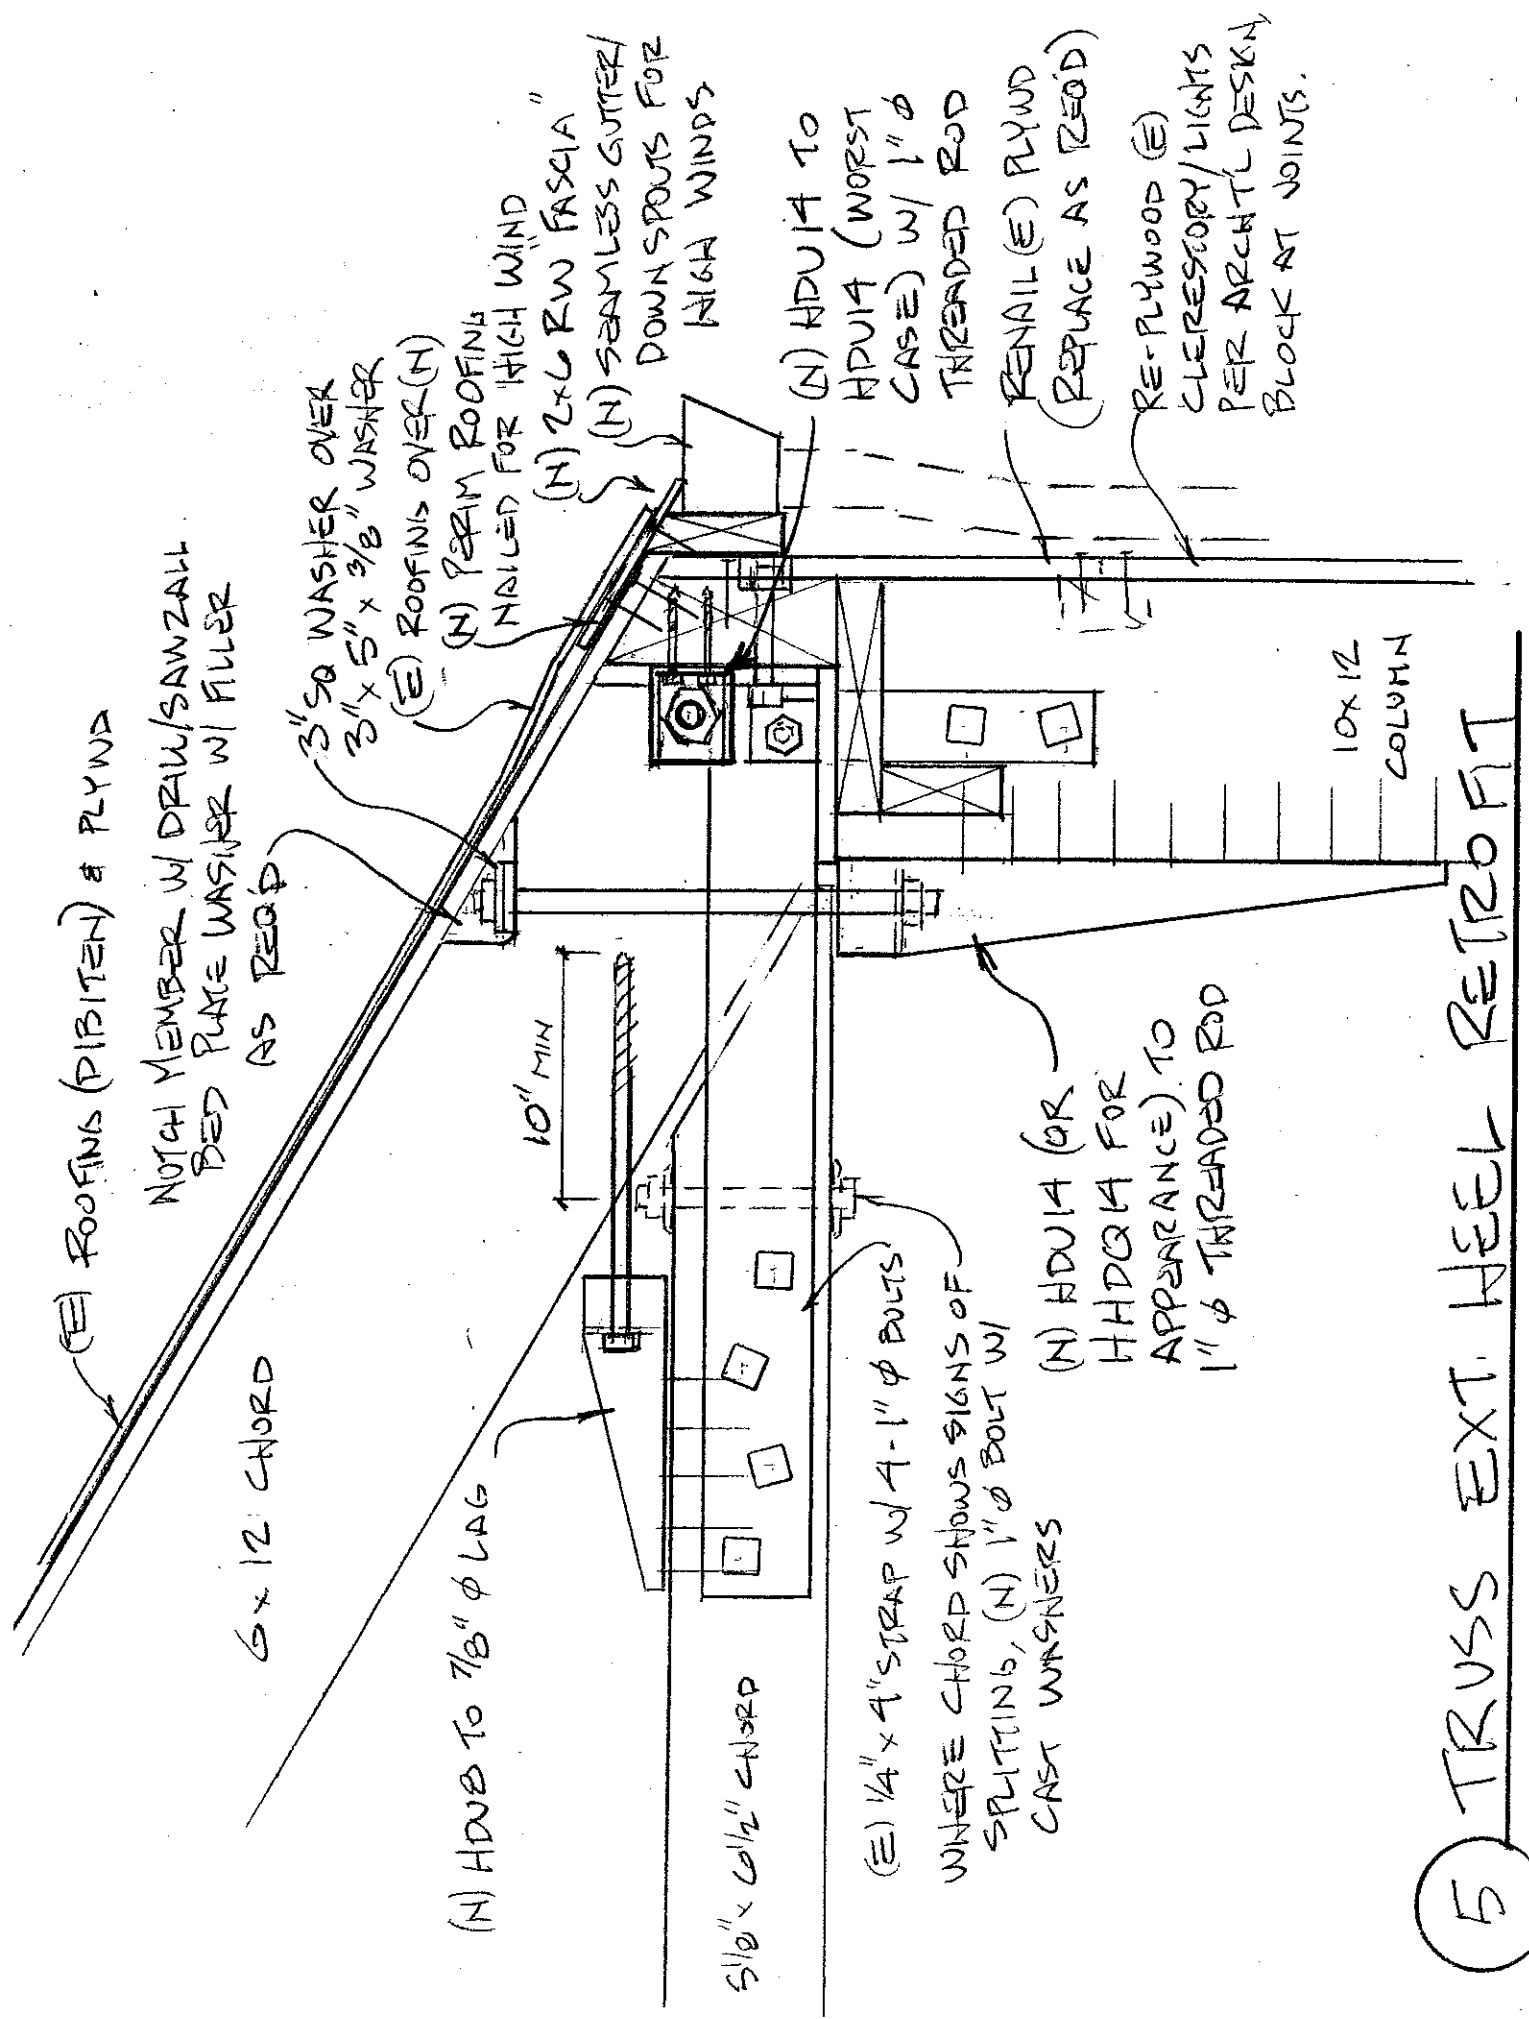 (E) ROOFING (DIBITEN) & PLYWD
NOTCH MEMBER W/ DRILL/SAWZALL
BED PLATE WASHER W/ FILLER
AS REQ'D
3" SQ WASHER OVER
3" x 5" x 3/8" WASHER
(E) ROOFING OVER (N)
(N) PERIM ROOFING
NAILED FOR HIGH WIND
(N) 2x6 RW FASCIA"
(N) SEAMLESS GUTTER/
DOWNSPOUTS FOR
HIGH WINDS
(N) HDU14 TO
HDU14 (WORST
CASE) W/ 1" Ø
THREADED ROD
RENAIL (E) PLYWD
(REPLACE AS REQ'D)
RE-PLYWOOD (E)
CLERESTORY/LIGHTS
PER ARCHT'L DESIGN,
BLOCK AT JOINTS.
6 x 12 CHORD
(N) HDU8 TO 7/8" Ø LAG
10" MIN
5 1/8" x 6 1/2" CHORD
(E) 1/4" x 4" STRAP W/ 4-1" Ø BOLTS
WHERE CHORD SHOWS SIGNS OF
SPLITTING, (N) 1" Ø BOLT W/
CAST WASHERS
(N) HDU14 (OR
HHDQ14 FOR
APPEARANCE) TO
1" Ø THREADED ROD
10x12
COLUMN
5 TRUSS EXT. HEEL RETROFIT